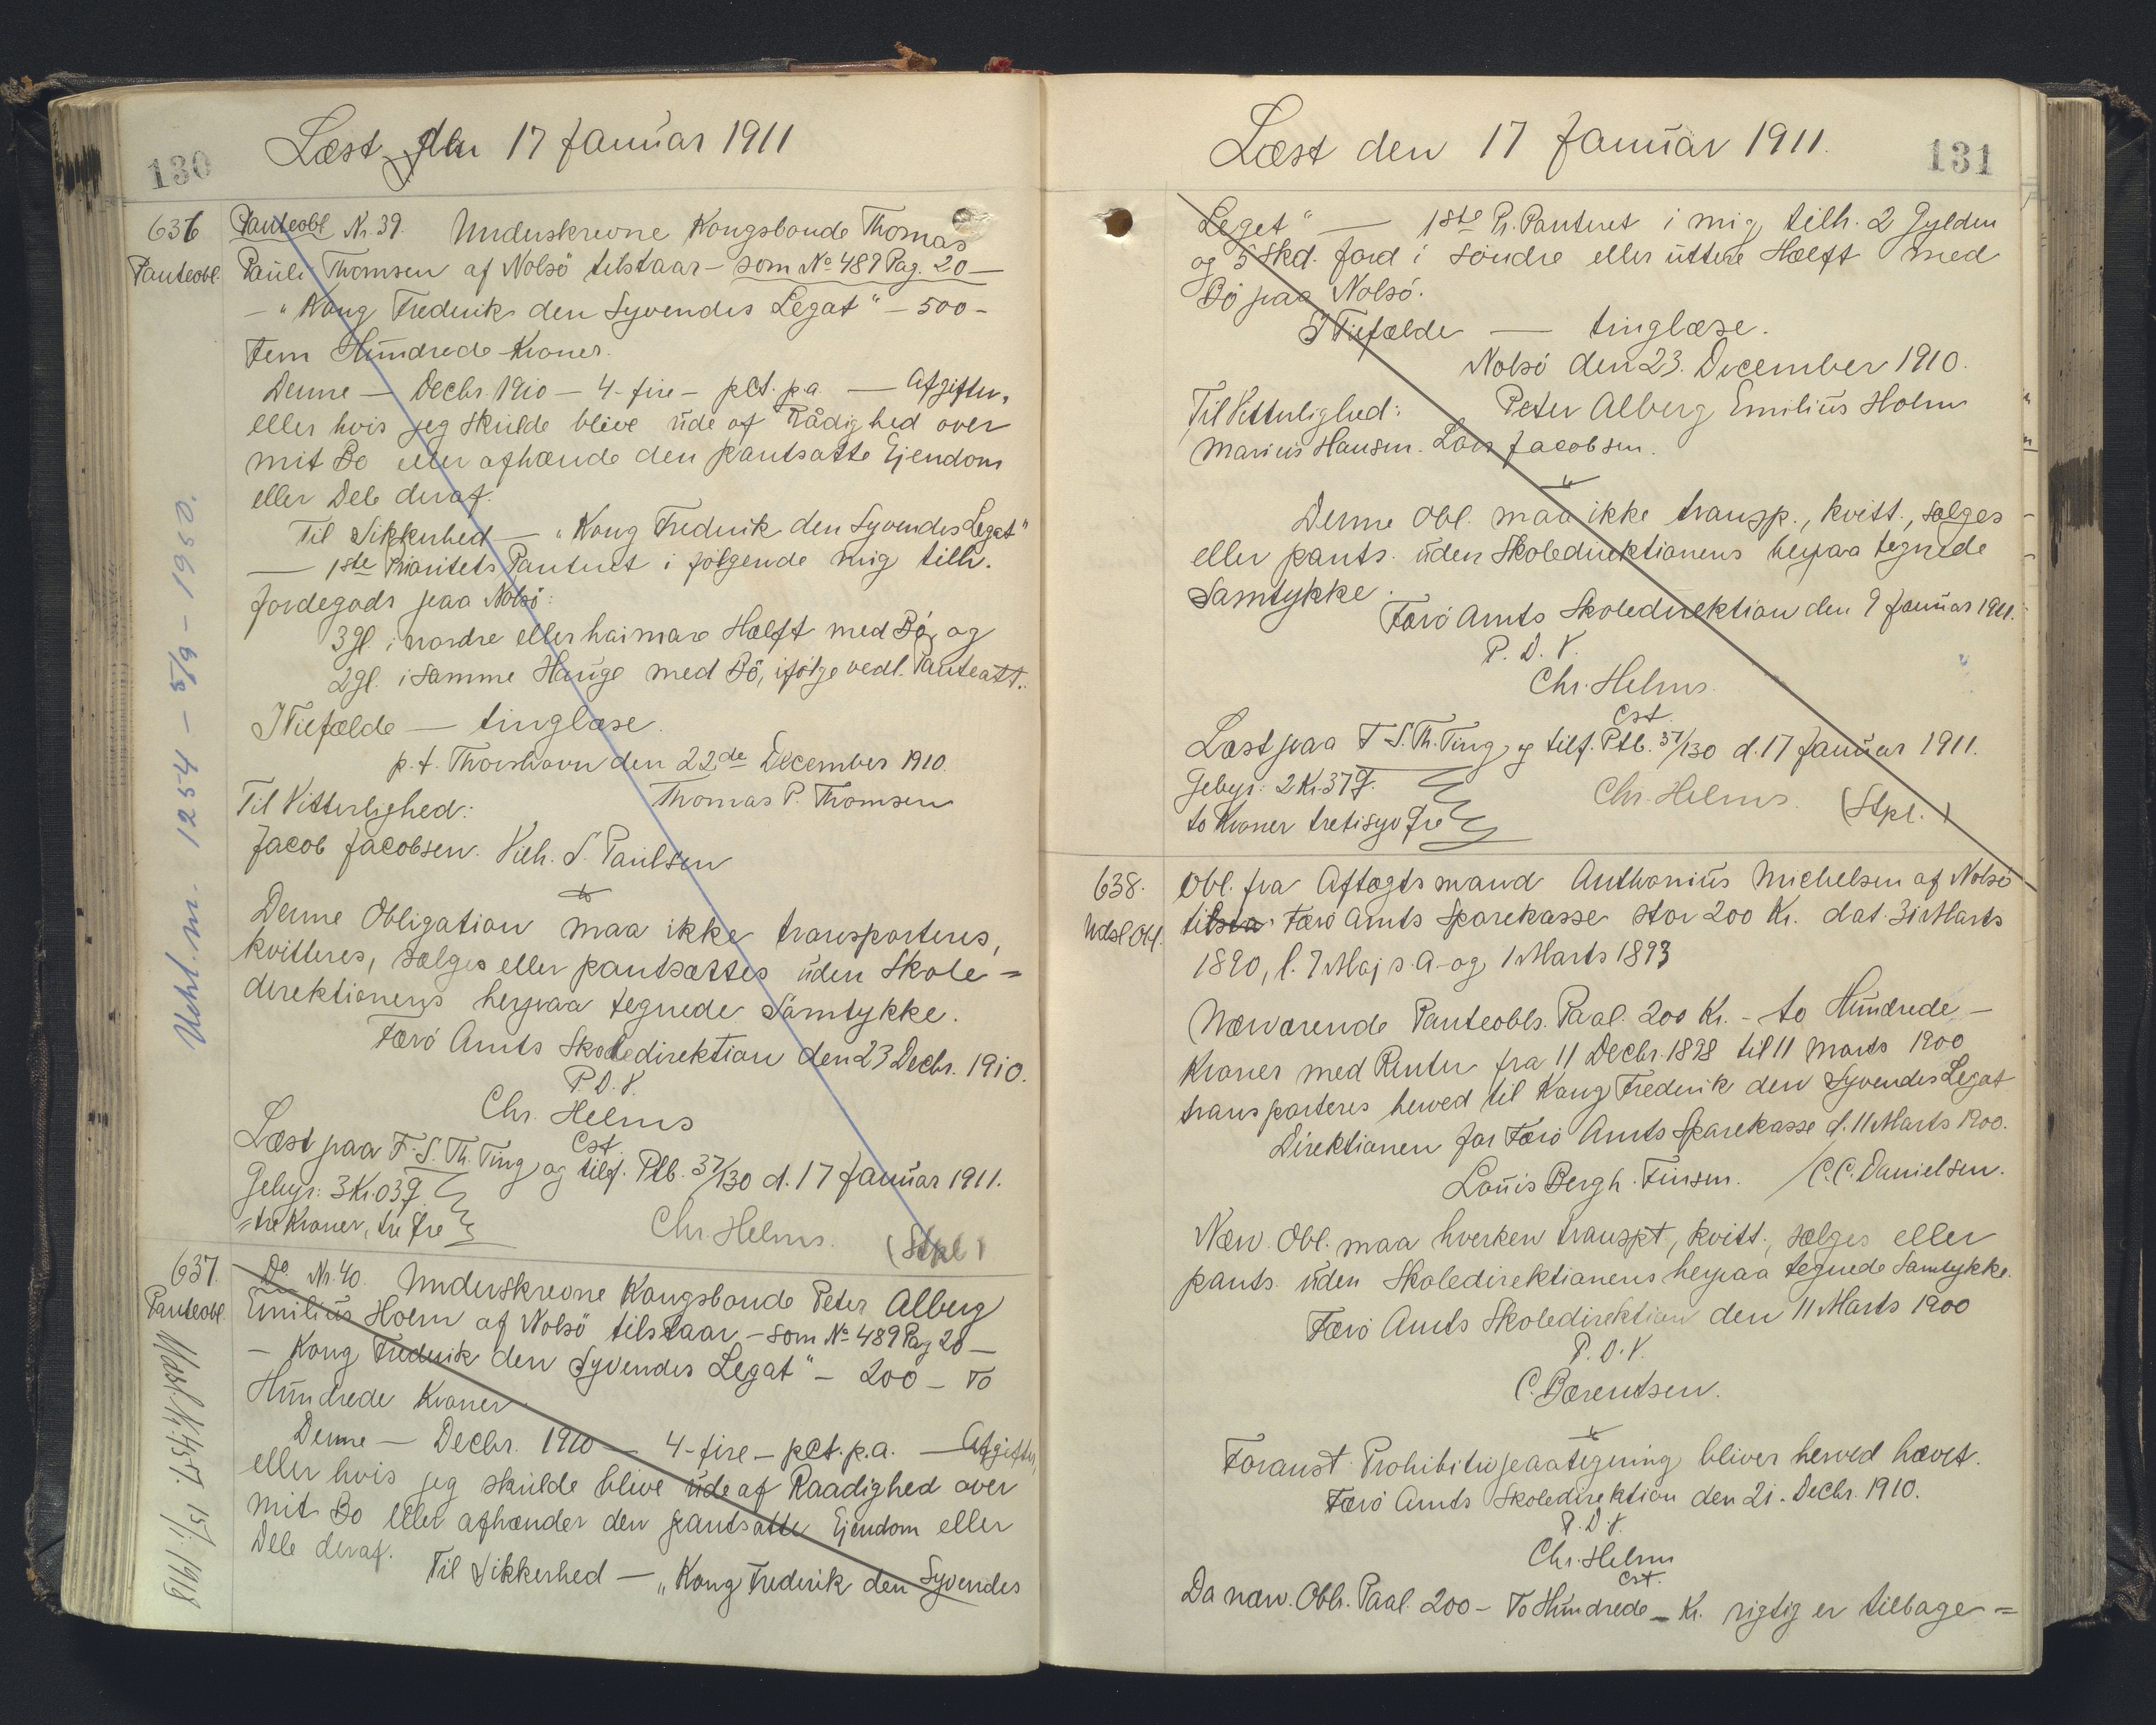 130
Læst den 17 Januar 1911
636
Panteobl.
Panteobl Nr. 39. Underskrevne Kongsbonde Thomas
Pauli Thomsen af Nolsö tilstaar – som No 489 Pag. 20 –
– "Kong Frederik den Syvendes Legat" – 500 –
Fem Hundrede Kroner.
Denne — Decbr. 1910 – 4 – fire – pCt. p a — Afgifter,
eller hvis jeg skulde blive ude af Rådighed over
mit Bo eller afhænde den pantsatte Ejendom
eller Dele deraf.
Til Sikkerhed — "Kong Frederik den Syvendes Legat"
— 1ste Prioritets Panteret i følgende mig tilh.
Jordegods paa Nolsö:
3 gl. i nordre eller haimare Hælft med Bö, og
2 gl. i samme Hauge med Bö, ifölge vedl. Panteatt.
I Tilfælde — tinglæse.
p. t. Thorshavn den 22de December 1910.
Til Vitterlighed: Thomas P. Thomsen
Jacob Jacobsen. Vilh. S. Paulsen
Denne Obligation maa ikke transporteres,
kvitteres, sælges eller pantsættes uden Skole=
direktionens herpaa tegnede Samtykke.
Færö Amts Skoledirektion den 23 Decbr. 1910.
P. D. V.
Chr. Helms
Cst.
Læst paa F. S. Th. Ting og tilf. Ptb. 37/130 d. 17 Januar 1911.
Gebyr: 3 Kr. 03 Ø.
= tre Kroner, tre Øre
Chr. Helms. (Stpl.)
Udsl. m. 1254 – 5/9 – 1950.
637.
Panteobl.
Do Nr. 40. Underskrevne Kongsbonde Peter Alberg
Emilius Holm af Nolsö tilstaar – som No 489 Pag 20 –
– Kong Frederik den Syvendes Legat" – 200 – To
Hundrede Kroner.
Denne — Decbr. 1910 — 4 – fire – pCt. p. a. — Afgifter,
eller hvis jeg skulde blive ude af Raadighed over
mit Bo eller afhænder den pantsatte Ejendom eller
Dele deraf.
Til Sikkerhed — "Kong Frederik den Syvendes
Udsl. Nr. 457. 15/11 1918
131
Læst den 17 Januar 1911.
Legat" — 1ste Pr. Panteret i mig tilh. 2 Gylden
og 5 Skd. Jord i söndre eller uttere Hælft med
Bö paa Nolsö.
I Tilfælde — tinglæse.
Nolsö den 23. December 1910.
Til Vitterlighed: Peter Alberg Emilius Holm
Marius Hansen. Lars Jacobsen.
Denne Obl. maa ikke transp., kvitt., sælges
eller pants. uden Skoledirektionens herpaa tegnede
Samtykke.
Færö Amts Skoledirektion den 9 Januar 1911.
P. D. V.
Chr. Helms.
Cst.
Læst paa F. S. Th. Ting og tilf. Ptb. 37/130 d. 17 Januar 1911.
Gebyr: 2 Kr. 37 Ø.
to Kroner tretisyv Øre
Chr. Helms. (Stpl.)
638.
Udsl. Obl.
Obl. fra Aftægtsmand Anthonius Michelsen af Nolsö
til Færö Amts Sparekasse stor 200 Kr. dat. 31 Marts
1890, l. 7 Maj s. A. og 1 Marts 1893
Nærværende Panteobls. Paal. 200 Kr. – to Hundrede –
Kroner med Renter fra 11 Decbr. 1898 til 11 Marts 1900
transporteres herved til Kong Frederik den Syvendes Legat
Direktionen for Færö Amts Sparekasse d. 11 Marts 1900.
Louis Bergh. Finsen. / C. C. Danielsen.
Nærv. Obl. maa hverken transpt., kvitt., sælges eller
pants. uden Skoledirektionens herpaa tegnede Samtykke.
Færö Amts Skoledirektion den 11 Marts 1900
P. D. V.
C. Bærentsen.
Foranst. Prohibitivpaategning bliver herved hævet.
Færö Amts Skoledirektion den 21. Decbr. 1910.
P. D. V.
Chr. Helms
Cst.
Da nærv. Obls. Paal. 200 – To Hundrede – Kr. rigtig er tilbage=